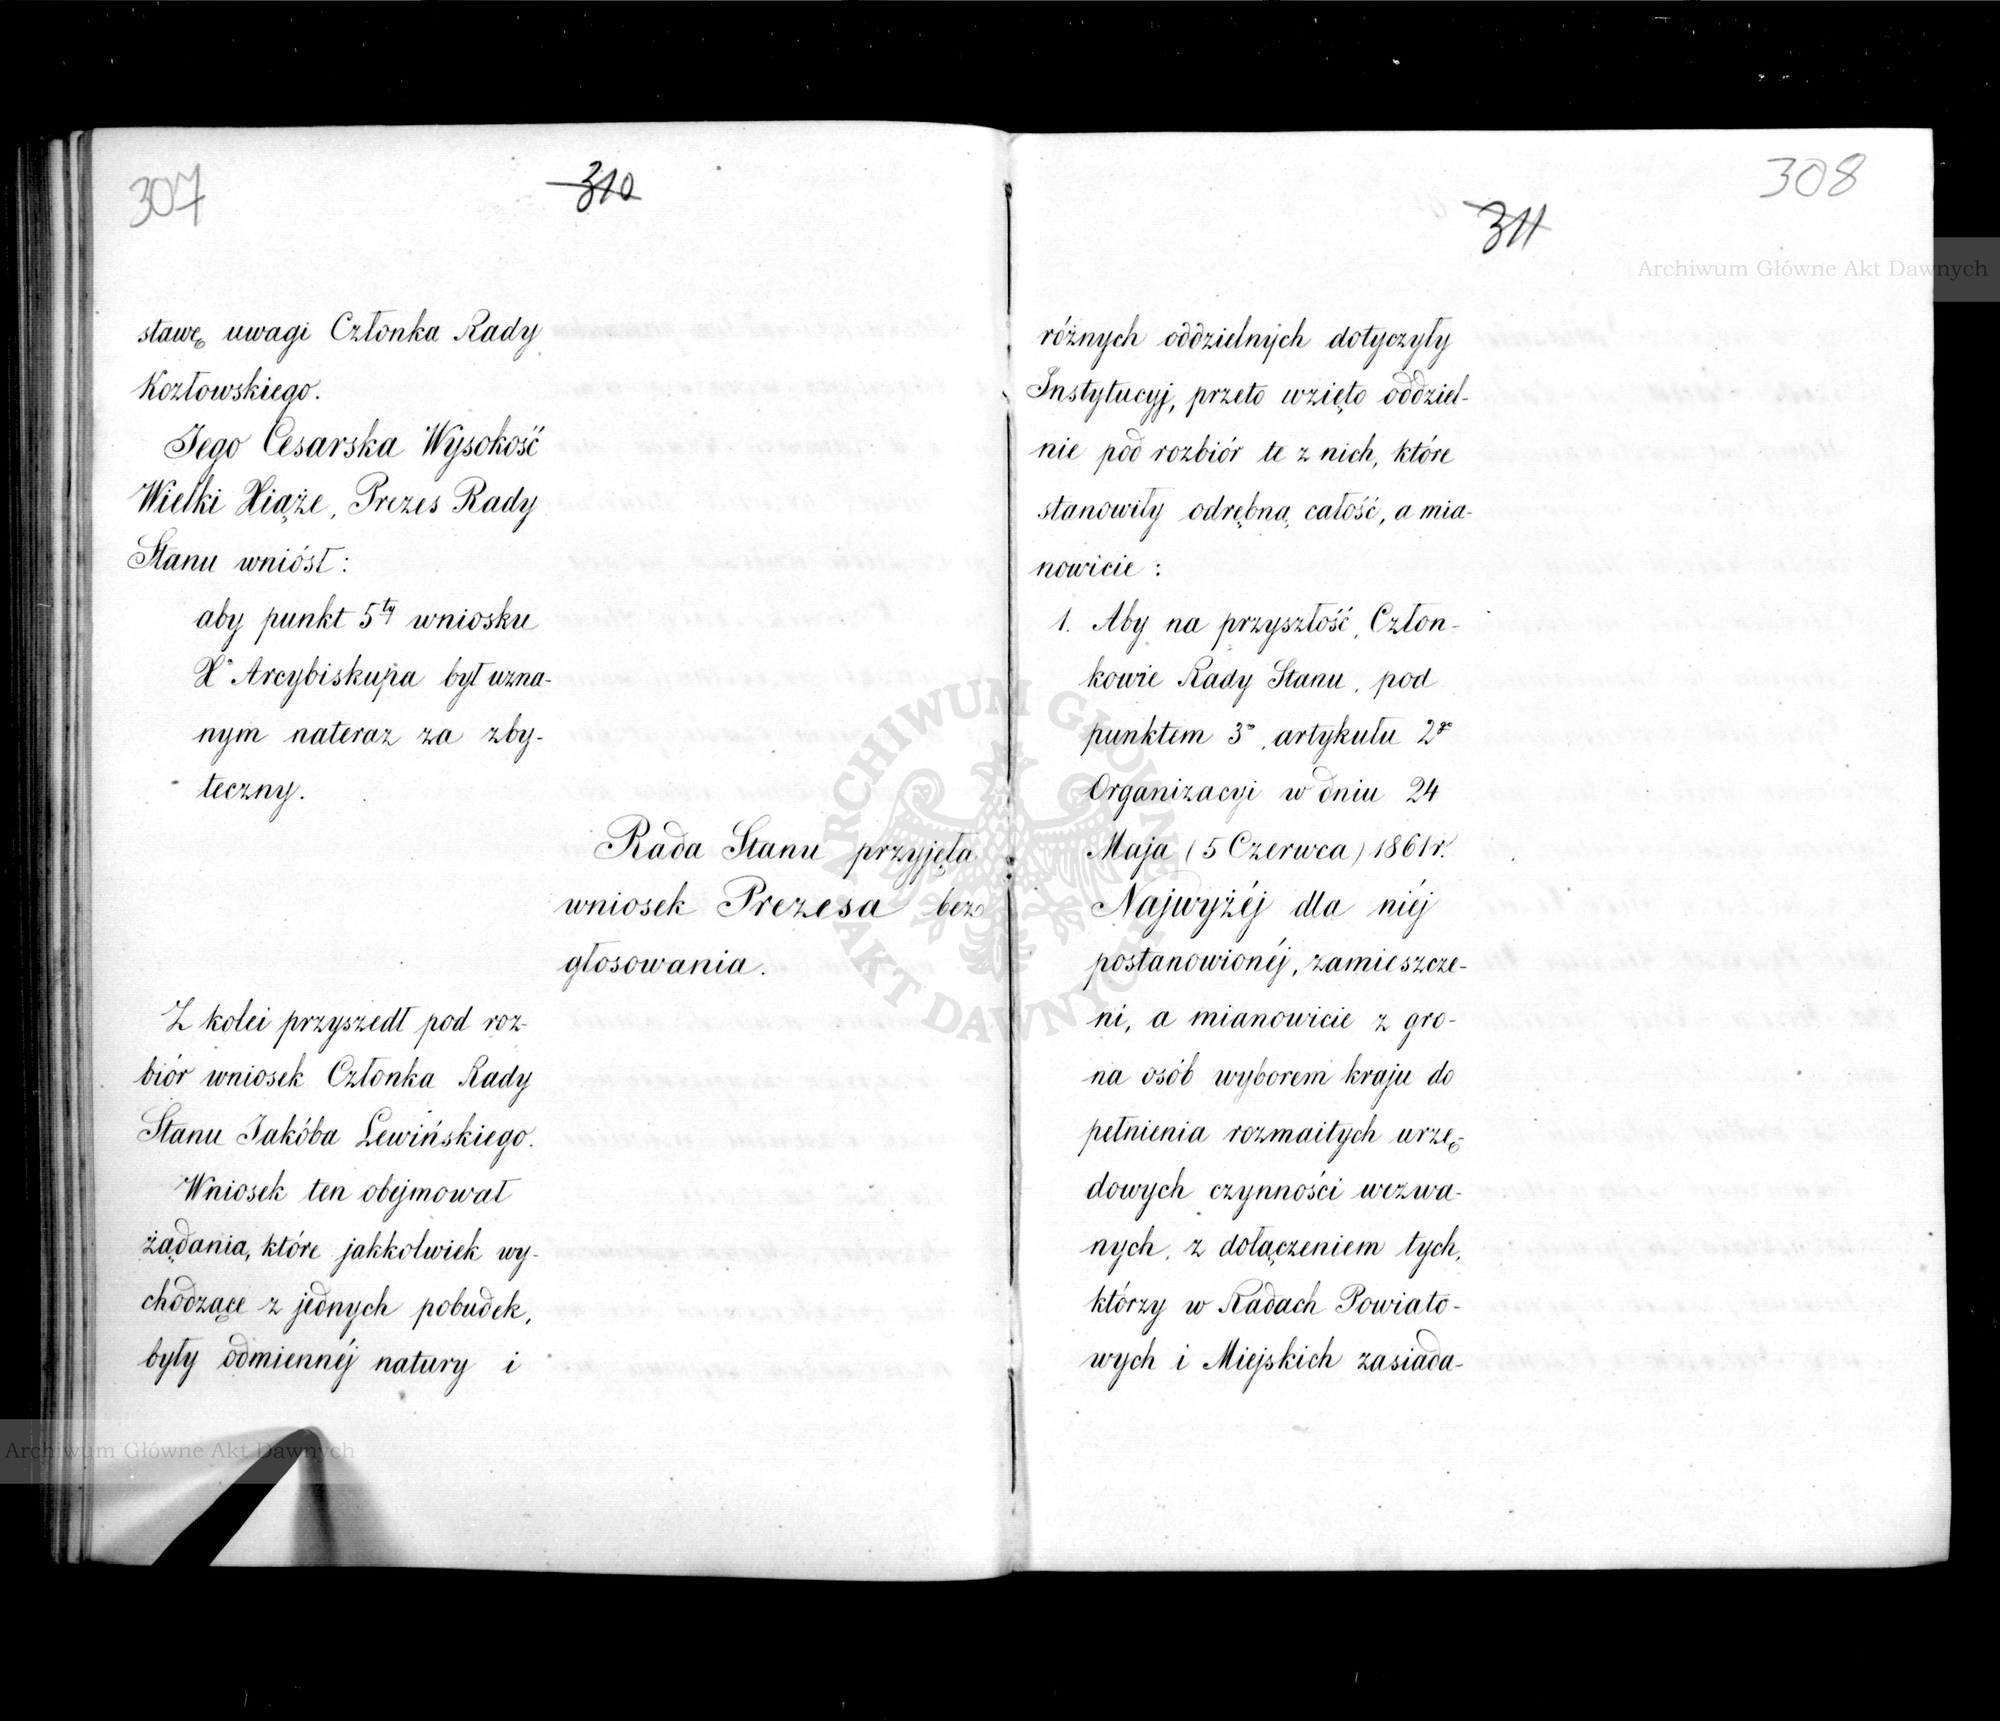 307
310
stawę uwagi Członka Rady
Kozłowskiego.
Jego Cesarska Wysokość
Wielki Xiąże, Prezes Rady
Stanu wniósł:
aby punkt 5ty wniosku
Xa Arcybiskupa był uzna-
nym nateraz za zby-
teczny.
Rada Stanu przyjęła
wniosek Prezesa bez
głosowania.
Z kolei przyszedł pod roz-
biór wniosek Członka Rady
Stanu Jakóba Lewińskiego.
Wniosek ten obejmował
żądania, które jakkolwiek wy-
chodzące z jednych pobudek,
były odmiennéj natury i
308
311
różnych oddzielnych dotyczyły
Instytucyj, przeto wzięto oddziel-
nie pod rozbiór te z nich, które
stanowiły odrębną całość, a mia-
nowicie:
1. Aby na przyszłość, Człon-
kowie Rady Stanu, pod
punktem 3m, artykułu 2go
Organizacyi w dniu 24
Maja (5 Czerwca) 1861 r.
Najwyżéj dla niéj
postanowionéj, zamieszcze-
ni, a mianowicie z gro-
na osób wyborem kraju do
pełnienia rozmaitych urzę-
dowych czynności wezwa-
nych, z dołączeniem tych,
którzy w Radach Powiato-
wych i Miejskich zasiada-
Archiwum Główne Akt Dawnych
Archiwum Główne Akt Dawnych
ARCHIWUM GŁÓWNE
AKT DAWNYCH